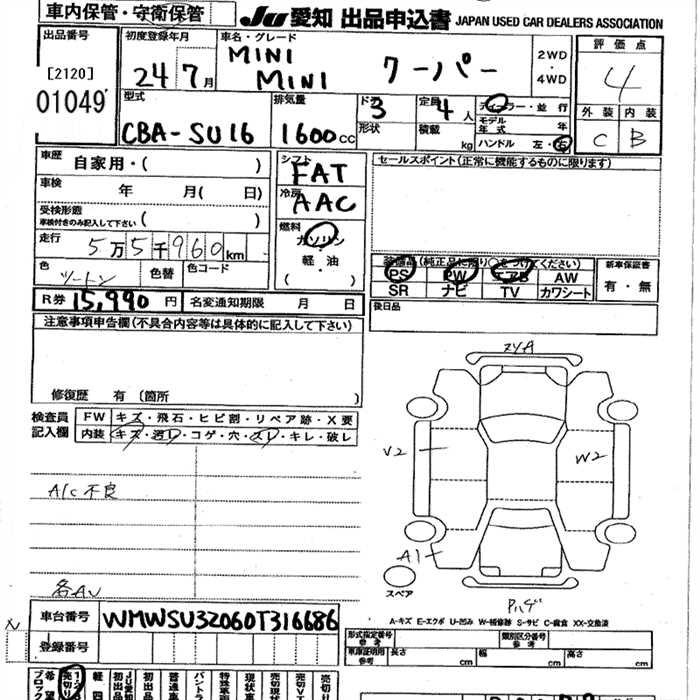 車内保管・守衛保管
Ju愛知 出品申込書 JAPAN USED CAR DEALERS ASSOCIATION
出品番号
[2120]
01049
初度登録年月
24 7月
車名・グレード
MINI
MINI クーパー
2WD
・
4WD
評価点
4
外装 内装
C B
型式
CBA-SU16
排気量
1600cc
ドア
3
形状
定員
4人
積載 kg
ディーラー・並行
モデル年式 年
ハンドル 左・右
車歴 自家用・( )
車検 年 月( 日)
受検形態
車検付きのみ記入して下さい ( )
走行 5万5千960km
色 ツートン 色替 色コード
シフト
FAT
冷房
AAC
燃料
ガソリン
・
軽・油
( )
セールスポイント(正常に機能するものに限ります)
装備品(純正品に限り○をつけてください)
PS PW エアB AW
SR ナビ TV カワシート
新車保証書
有・無
R券 15,990円 名変通知期限 月 日
後日品
注意事項申告欄(不具合内容等は具体的に記入して下さい)
修復歴 有 〔箇所 〕
検査員記入欄
FW キズ・飛石・ヒビ割・リペア跡・X要
内装 キズ・汚レ・コゲ・穴・スレ・キレ・破レ
A/C不良
各AU
スリA
V2
W2
A1
スペア
Pハゲ
A-キズ E-エクボ U-凹み W-補修跡 S-サビ C-腐食 XX-交換済
車台番号 WMWSU32060T316686
登録番号
形式指定番号
参考
類別区分番号
参考
車庫証明用
参考
長さ cm 幅 cm 高さ cm